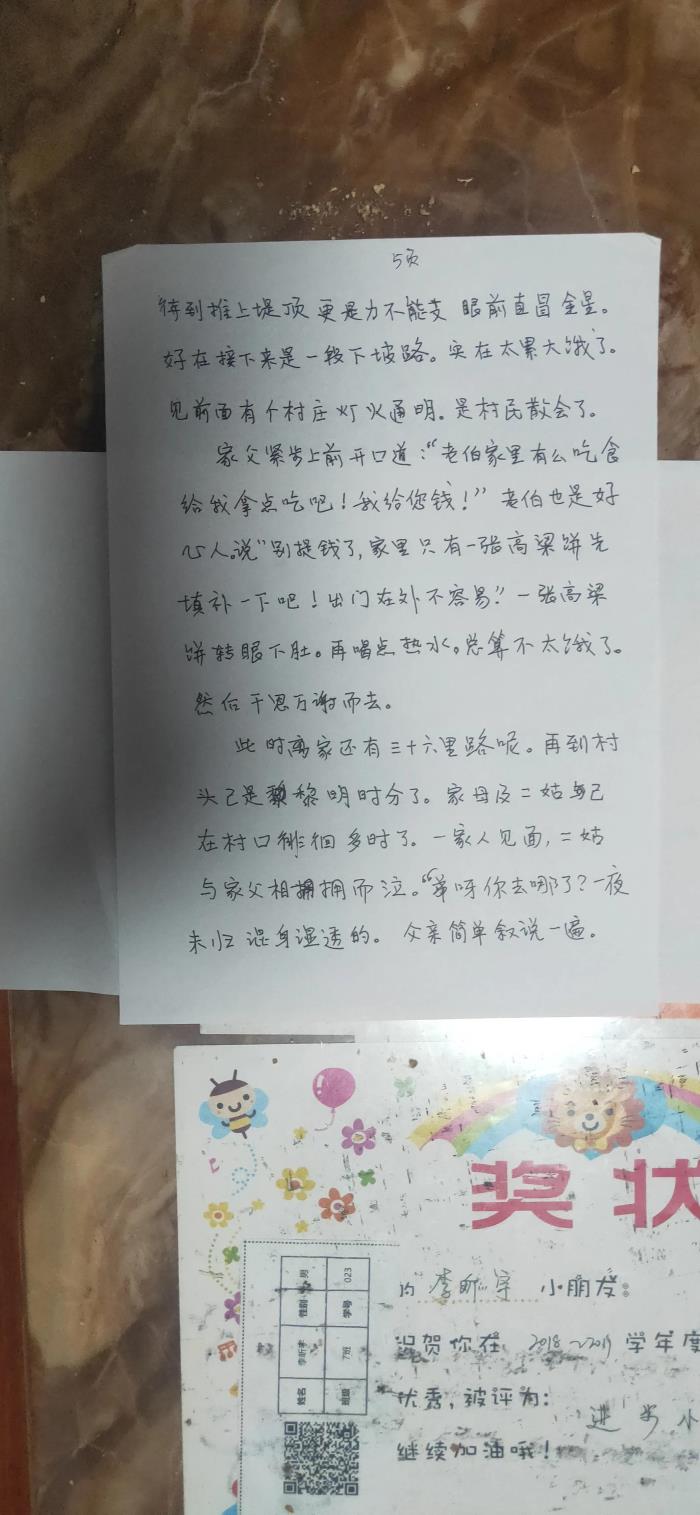 5页
待到推上堤顶更是力不能支 眼前直冒金星。
好在接下来是一段下坡路。实在太累太饿了。
见前面有个村庄灯火通明。是村民散会了。
家父紧步上前开口道："老伯家里有么吃食
给我拿点吃吧！我给您钱！"老伯也是好
心人。说"别提钱了，家里只有一张高梁饼先
填补一下吧！出门在外不容易！"一张高梁
饼转眼下肚。再喝点热水。总算不太饿了。
然后千恩万谢而去。
此时离家还有三十六里路呢。再到村
头已是黎明时分了。家母及二姑母已
在村口徘徊多时了。一家人见面，二姑
与家父相拥而泣。"弟呀你去哪了？一夜
未归混身湿透的。父亲简单叙说一遍。
奖状
李昕宇 小朋友：
祝贺你在 2018~2019 学年度
优秀，被评为：
进步小
继续加油哦！
姓名 李昕宇 性别 男
班级 7班 学号 023